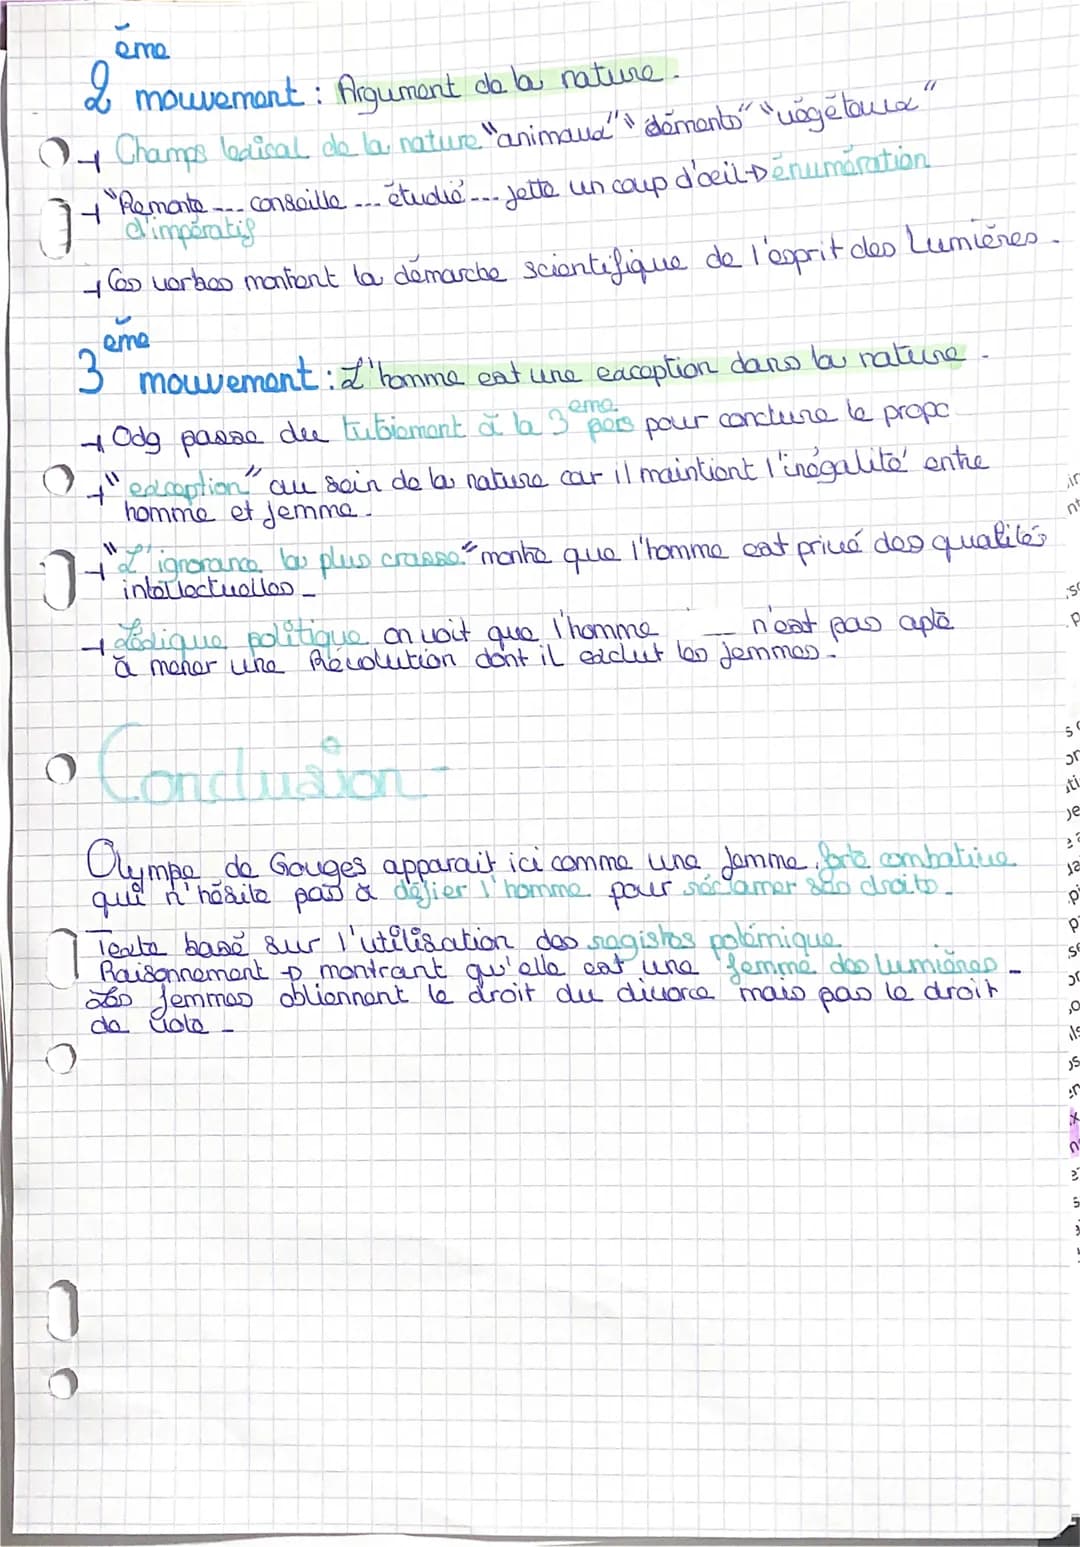 2ème mouvement : Argument de la nature.
→ Champs lexical de la nature "animaux" "éléments" "végétaux"
→ "Remonte --- conseille --- étudie --- jette un coup d'oeil → énumération
d'impératif
→ Ces verbes montrent la démarche scientifique de l'esprit des Lumières.
3ème mouvement : L'homme est une exception dans la nature.
→ Odg passe du tutoiement à la 3ème pers pour conclure le propo
→ "exception" au sein de la nature car il maintient l'inégalité entre
homme et femme.
→ "L'ignorance la plus crasse" montre que l'homme est privé des qualités
intellectuelles -
→ Lexique politique on voit que l'homme n'est pas apte
à mener une Révolution dont il exclut les femmes.
Conclusion -
Olympe de Gouges apparait ici comme une femme forte combative
qui n'hésite pas à défier l'homme pour réclamer ses droits.
Texte basé sur l'utilisation des registres polémique.
Raisonnement → montrant qu'elle est une femme des lumières -
Les femmes obtiennent le droit du divorce mais pas le droit
de vote -